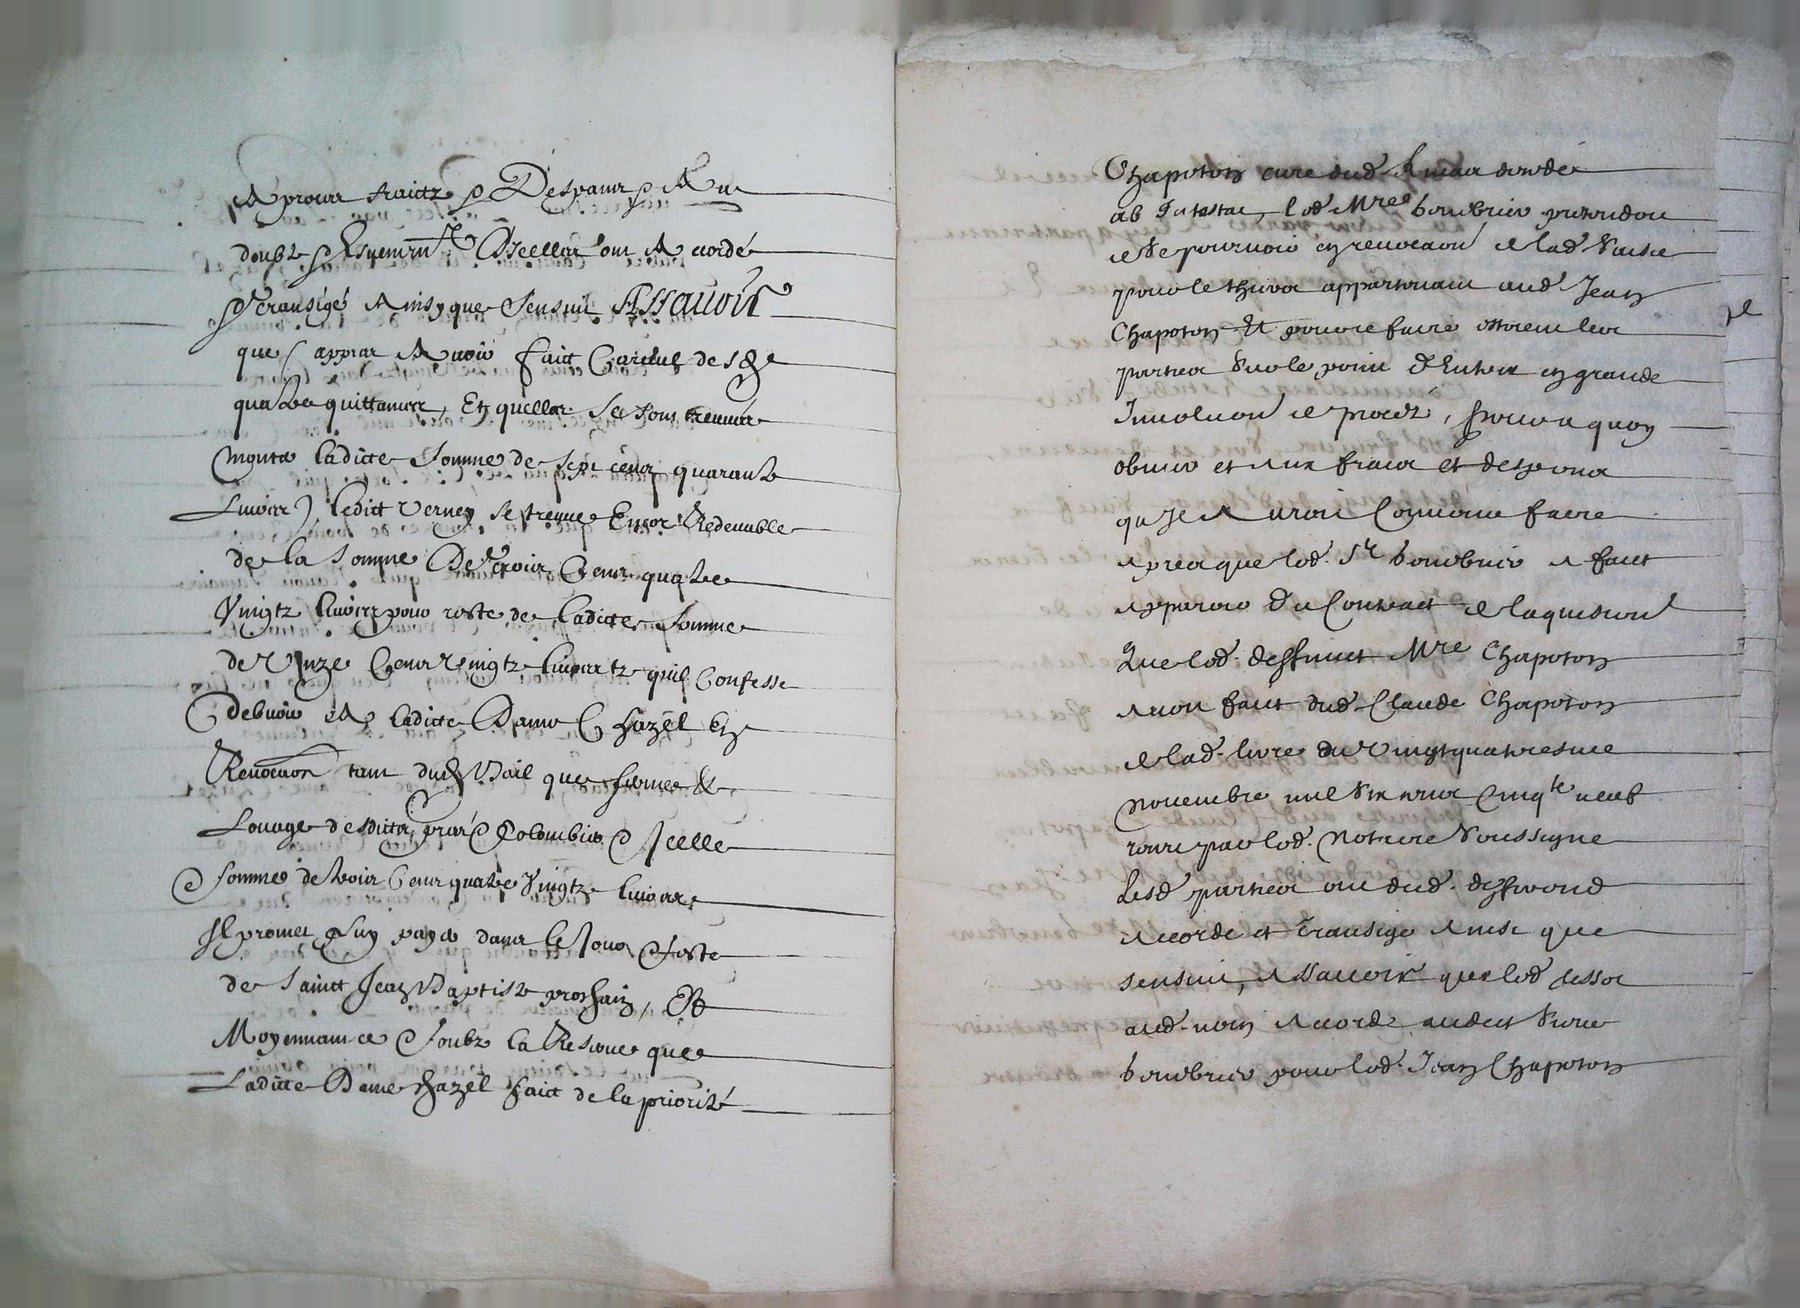 A procur traictz & Despanr & A un
doubz & Esvenemt Dicelluy ont Acordé
& transigé Ainsy que sensuit Assauoir
que appres Auoir faict Calcul desd
quatre quittances, Et quelles se sont treuuée
monter ladicte somme de sept centz quarante
Liures ledict Verney se treuue Encor Redeuable
de la somme De trois Centz quatre
Vingtz liures pour reste de ladicte somme
de Unze Centz Vingtz liures quil Confesse
debuoir A ladicte Dame Chazel En
Reuocation tant dud Bail que ferme &
Louage desdictz prés Colombier & Icelle
somme de trois Centz quatre Vingtz liures
Il promet Luy payer dans le Jour & feste
de Sainct Jean Baptiste prochain, Et
Moyennance & soubz la Reserue que
Ladicte Dame Chazel faict de la priorité
Chaponon cure dud decedé
ab Intestat, lod Mre Bourbier pretendoit
de se pouruoir en reuocaon de lad Vante
pour le thiers appartenant aud Jean
Chaponon Et pour ce faire estoient les
parties sur le point d'Entrer en grande
Inuoluon de procez, pour a quoy
obuier et aux fraix et despens
qu Il Auroit Conuenu faire
apres que lod. Sr Bourbier a faict
aparoir du Contract de laquision
Que lod. deffunct Mre Chaponon
auoit faict dud. Claude Chaponon
de lad. livre du Vingtquatriesme
nouembre mil six centz Cinqte neuf
receu par lod. Notaire soussigne
Lesd parties ont dud. different
accorde et transige Ainsi que
sensuit, Assauoir que lod
aud. nom accorde audict Sieur
Bourbier pour lod. Jean Chaponon